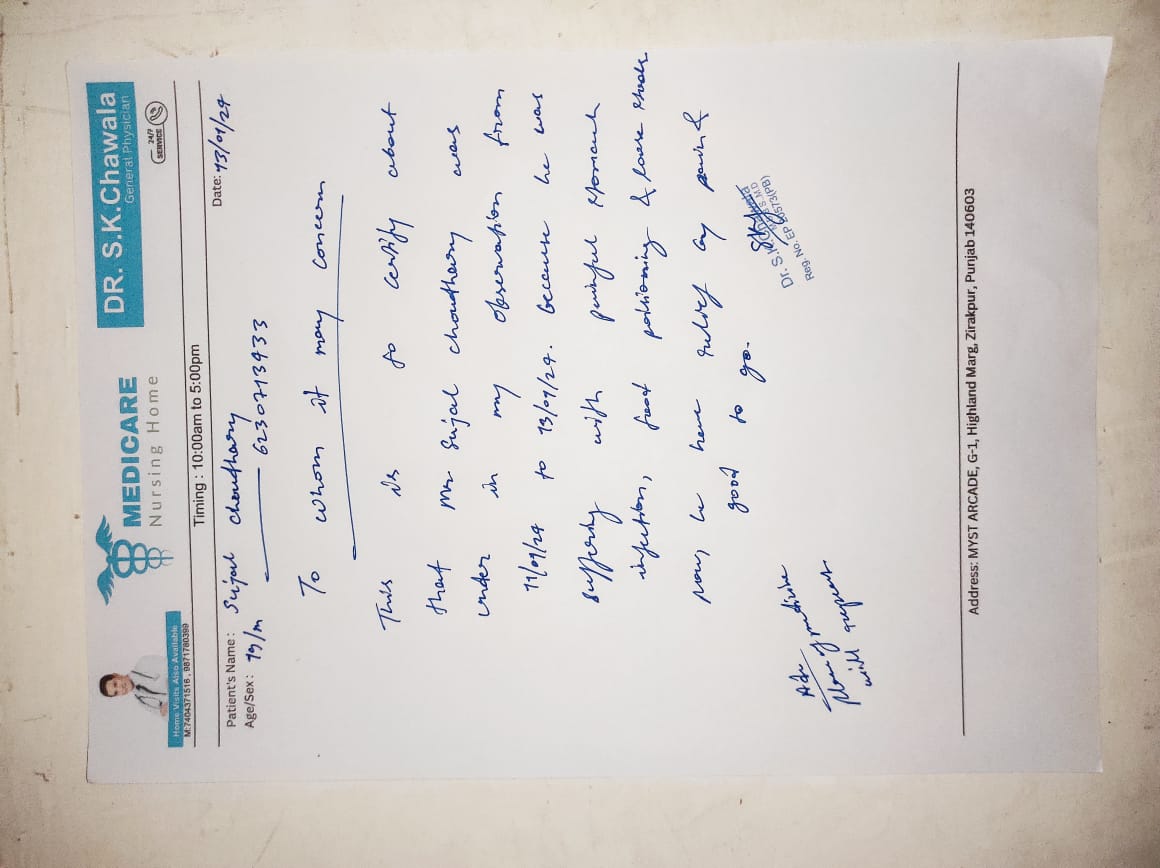 Home Visits Also Available
M:7404371516, 9871780399
MEDICARE
Nursing Home
DR. S.K.Chawala
General Physician
24/7
SERVICE
Timing : 10:00am to 5:00pm
Patient's Name: Sujal choudhary
Date: 13/09/24
Age/Sex: 19/m 6230713933
To whom it may concern
This is to certify about
that Mr Sujal choudhary was
under in my observation from
11/09/24 to 13/09/24. because he was
suffering with painful stomach
infection, food poisioning & loose stools
now he have relief by pain &
good to go.
Dr. S.K.
Reg. No. EP 20573(PB)
Adv
medicine
with
Address: MYST ARCADE, G-1, Highland Marg, Zirakpur, Punjab 140603